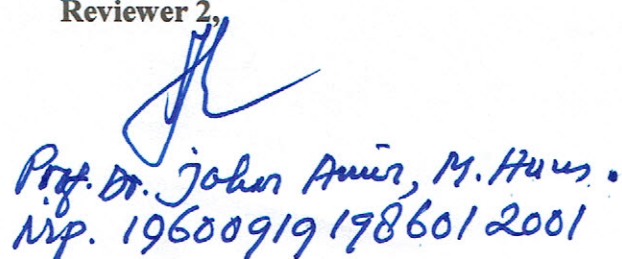 Reviewer 2,
Prof. Dr. Johar Amir, M. Hum.
Nip. 19600919 198601 2001